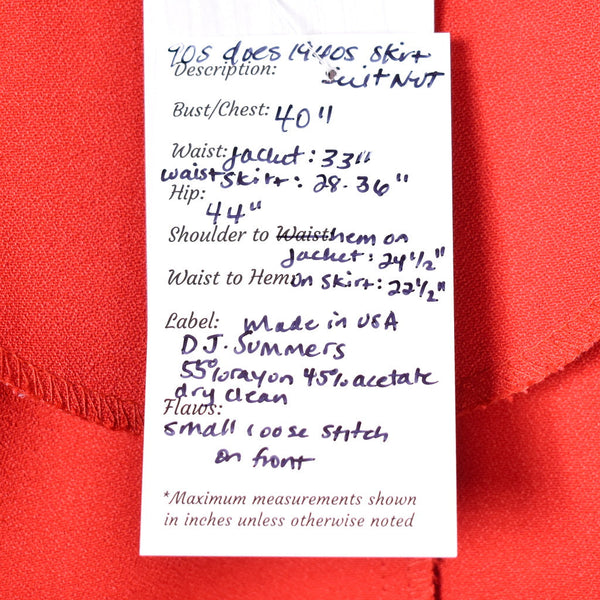 90s does 1940s skirt
Description: suit NWT
Bust/Chest: 40"
Waist: jacket: 33"
waist skirt: 28-36"
Hip:
44"
Shoulder to Waist hem on
jacket: 24 1/2"
Waist to Hem: on skirt: 22 1/2"
Label: made in USA
D.J. Summers
55% rayon 45% acetate
dry clean
Flaws:
small loose stitch
on front
*Maximum measurements shown
in inches unless otherwise noted